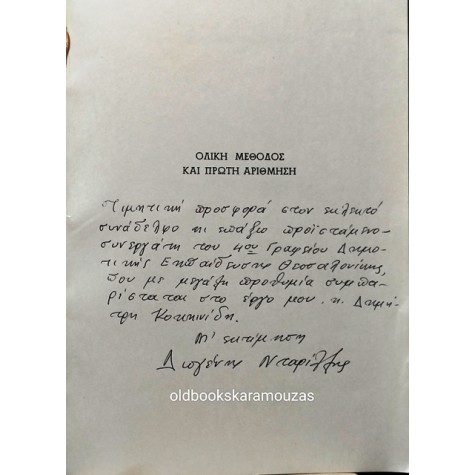 ΟΛΙΚΗ ΜΕΘΟΔΟΣ
ΚΑΙ ΠΡΩΤΗ ΑΡΙΘΜΗΣΗ
Τιμητική προσφορά στον εκλεκτό
συνάδελφο κι επάξιο προϊστάμενο-
συνεργάτη του 4ου Γραφείου Δημο-
τικής Εκπαίδευσης Θεσσαλονίκης,
που με μεγάλη προθυμία συμπα-
ρίσταται στο έργο μου. κ. Δημή-
τρη Κοκκινίδη.
Μ' εκτίμηση
Διογένης Νταρίλης
oldbookskaramouzas